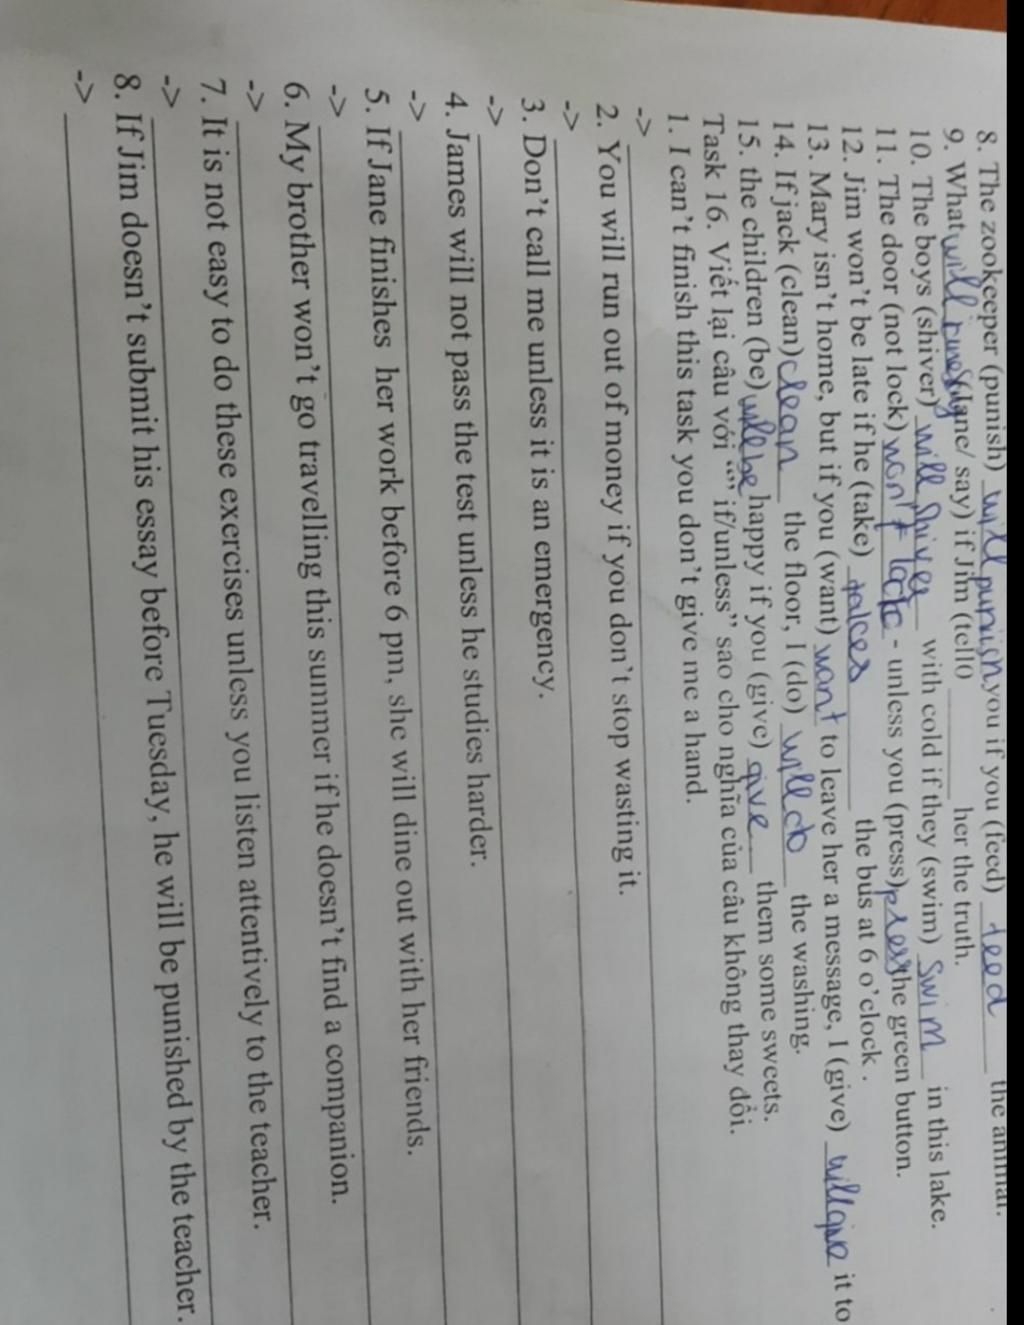 8. The zookeeper (punish) will punish you if you (feed) feed the animal.
9. What will (Jane/ say) if Jim (tell0 ______ her the truth.
10. The boys (shiver) will shiver with cold if they (swim) swim in this lake.
11. The door (not lock) won't lock - unless you (press) press the green button.
12. Jim won't be late if he (take) takes the bus at 6 o'clock .
13. Mary isn't home, but if you (want) want to leave her a message, I (give) will give it to
14. If jack (clean) clean the floor, I (do) will do the washing.
15. the children (be) will be happy if you (give) give them some sweets.
Task 16. Viết lại câu với "" if/unless" sao cho nghĩa của câu không thay đổi.
1. I can't finish this task you don't give me a hand.
->
2. You will run out of money if you don't stop wasting it.
->
3. Don't call me unless it is an emergency.
->
4. James will not pass the test unless he studies harder.
->
5. If Jane finishes her work before 6 pm, she will dine out with her friends.
->
6. My brother won't go travelling this summer if he doesn't find a companion.
->
7. It is not easy to do these exercises unless you listen attentively to the teacher.
->
8. If Jim doesn't submit his essay before Tuesday, he will be punished by the teacher.
->